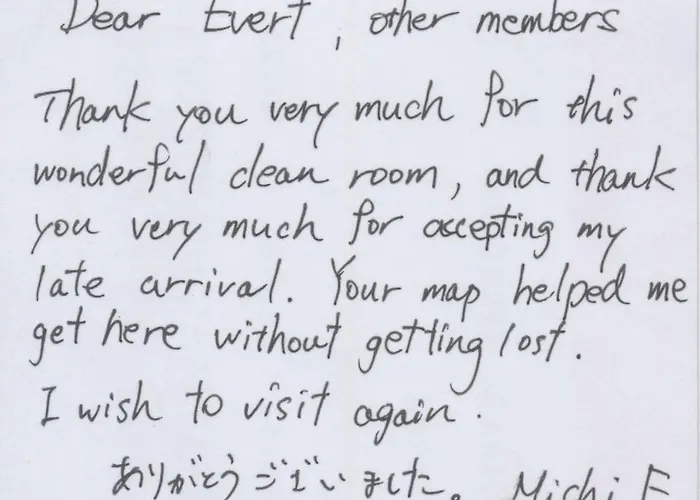 Dear Evert, other members
Thank you very much for this
wonderful clean room, and thank
you very much for accepting my
late arrival. Your map helped me
get here without getting lost.
I wish to visit again.
ありがとうございました。 Michi F